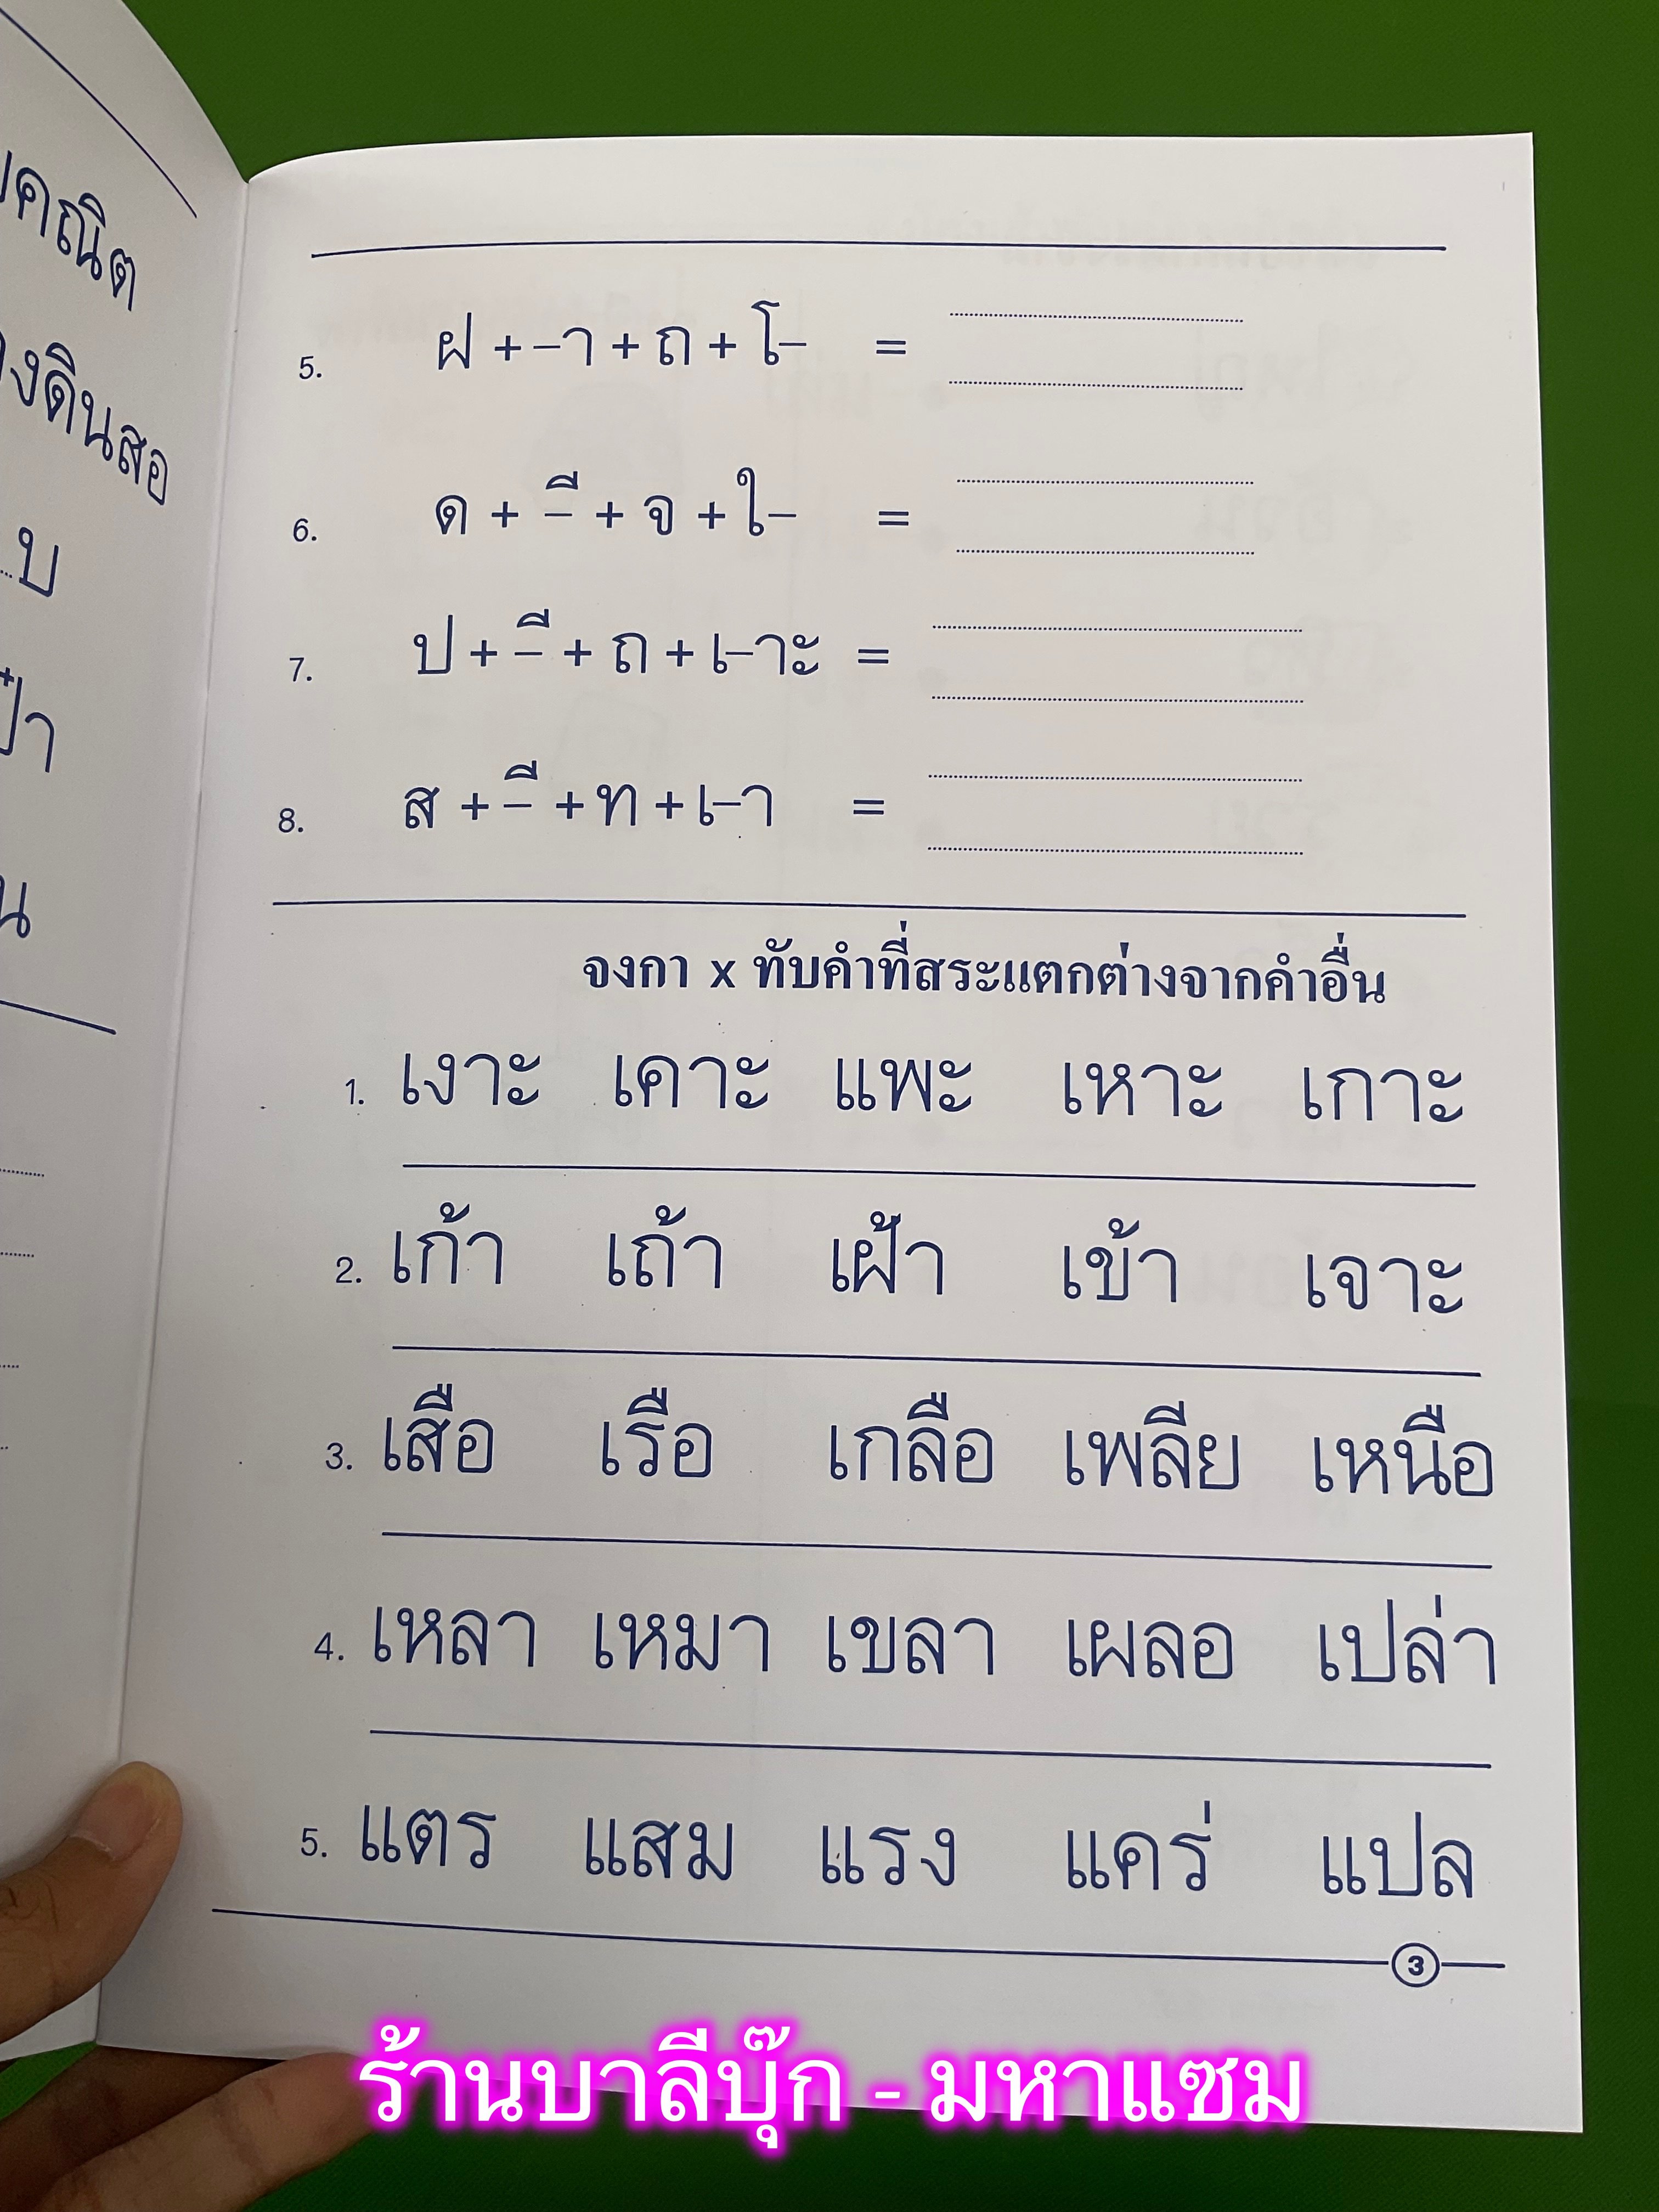 คณิต
งดินสอ
บ
ป๋า
น
5. ฝ + –า + ถ + โ– =
6. ด + –ี + จ + ใ– =
7. ป + –ี + ถ + เ–าะ =
8. ส + –ี + ท + เ–า =
จงกา x ทับคำที่สระแตกต่างจากคำอื่น
1. เงาะ เคาะ แพะ เหาะ เกาะ
2. เก้า เถ้า เฝ้า เข้า เจาะ
3. เสือ เรือ เกลือ เพลีย เหนือ
4. เหลา เหมา เขลา เผลอ เปล่า
5. แตร แสม แรง แคร่ แปล
3
ร้านบาลีบุ๊ก - มหาแซม